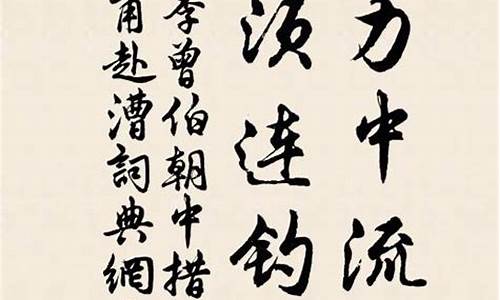 力中流
须连钓
李曾伯朝中措
甫赴漕詞典網